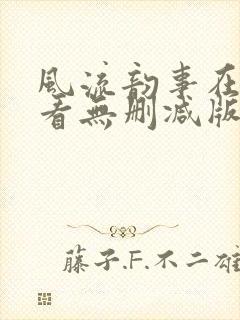 風流韵事在
看無删减版
藤子.F.不二雄